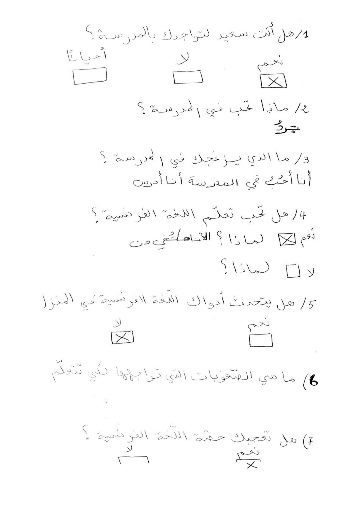 1/ هل أنت سعيد لتواجدك بالمدرسة ؟
نعم لا أحيانا
2/ ماذا تحب في المدرسة ؟
3/ ما الذي يزعجك في المدرسة ؟
أنا أحب في المدرسة أنا
4/ هل تحب تعلم اللغة الفرنسية ؟
نعم لماذا ؟
لا لماذا ؟
5/ هل يتحدث أبواك اللغة الفرنسية في المنزل
نعم لا
6/ ما هي الصعوبات التي تواجهها لكي تتعلم
7) هل تعجبك حصة اللغة الفرنسية ؟
نعم لا